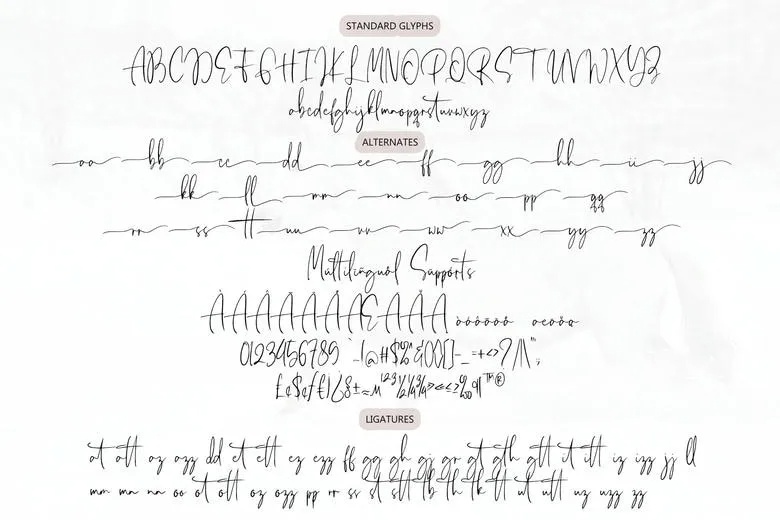 STANDARD GLYPHS
ABCDEFGHIJKLMNOPQRSTUVWXYZ
abcdefghijklmnopqrstuvwxyz
ALTERNATES
aa bb cc dd ee ff gg hh ii jj
kk ll mm nn oo pp qq
rr ss tt uu vv ww xx yy zz
Multilingual Supports
0123456789
LIGATURES
at att az azz dd et ett ez ezz ff gg gh gj gr gt gth gtt it itt iz izz jj ll
mm mn nn oo ot ott oz ozz pp rr ss st stt tb th tk tt ut utt uz uzz zz